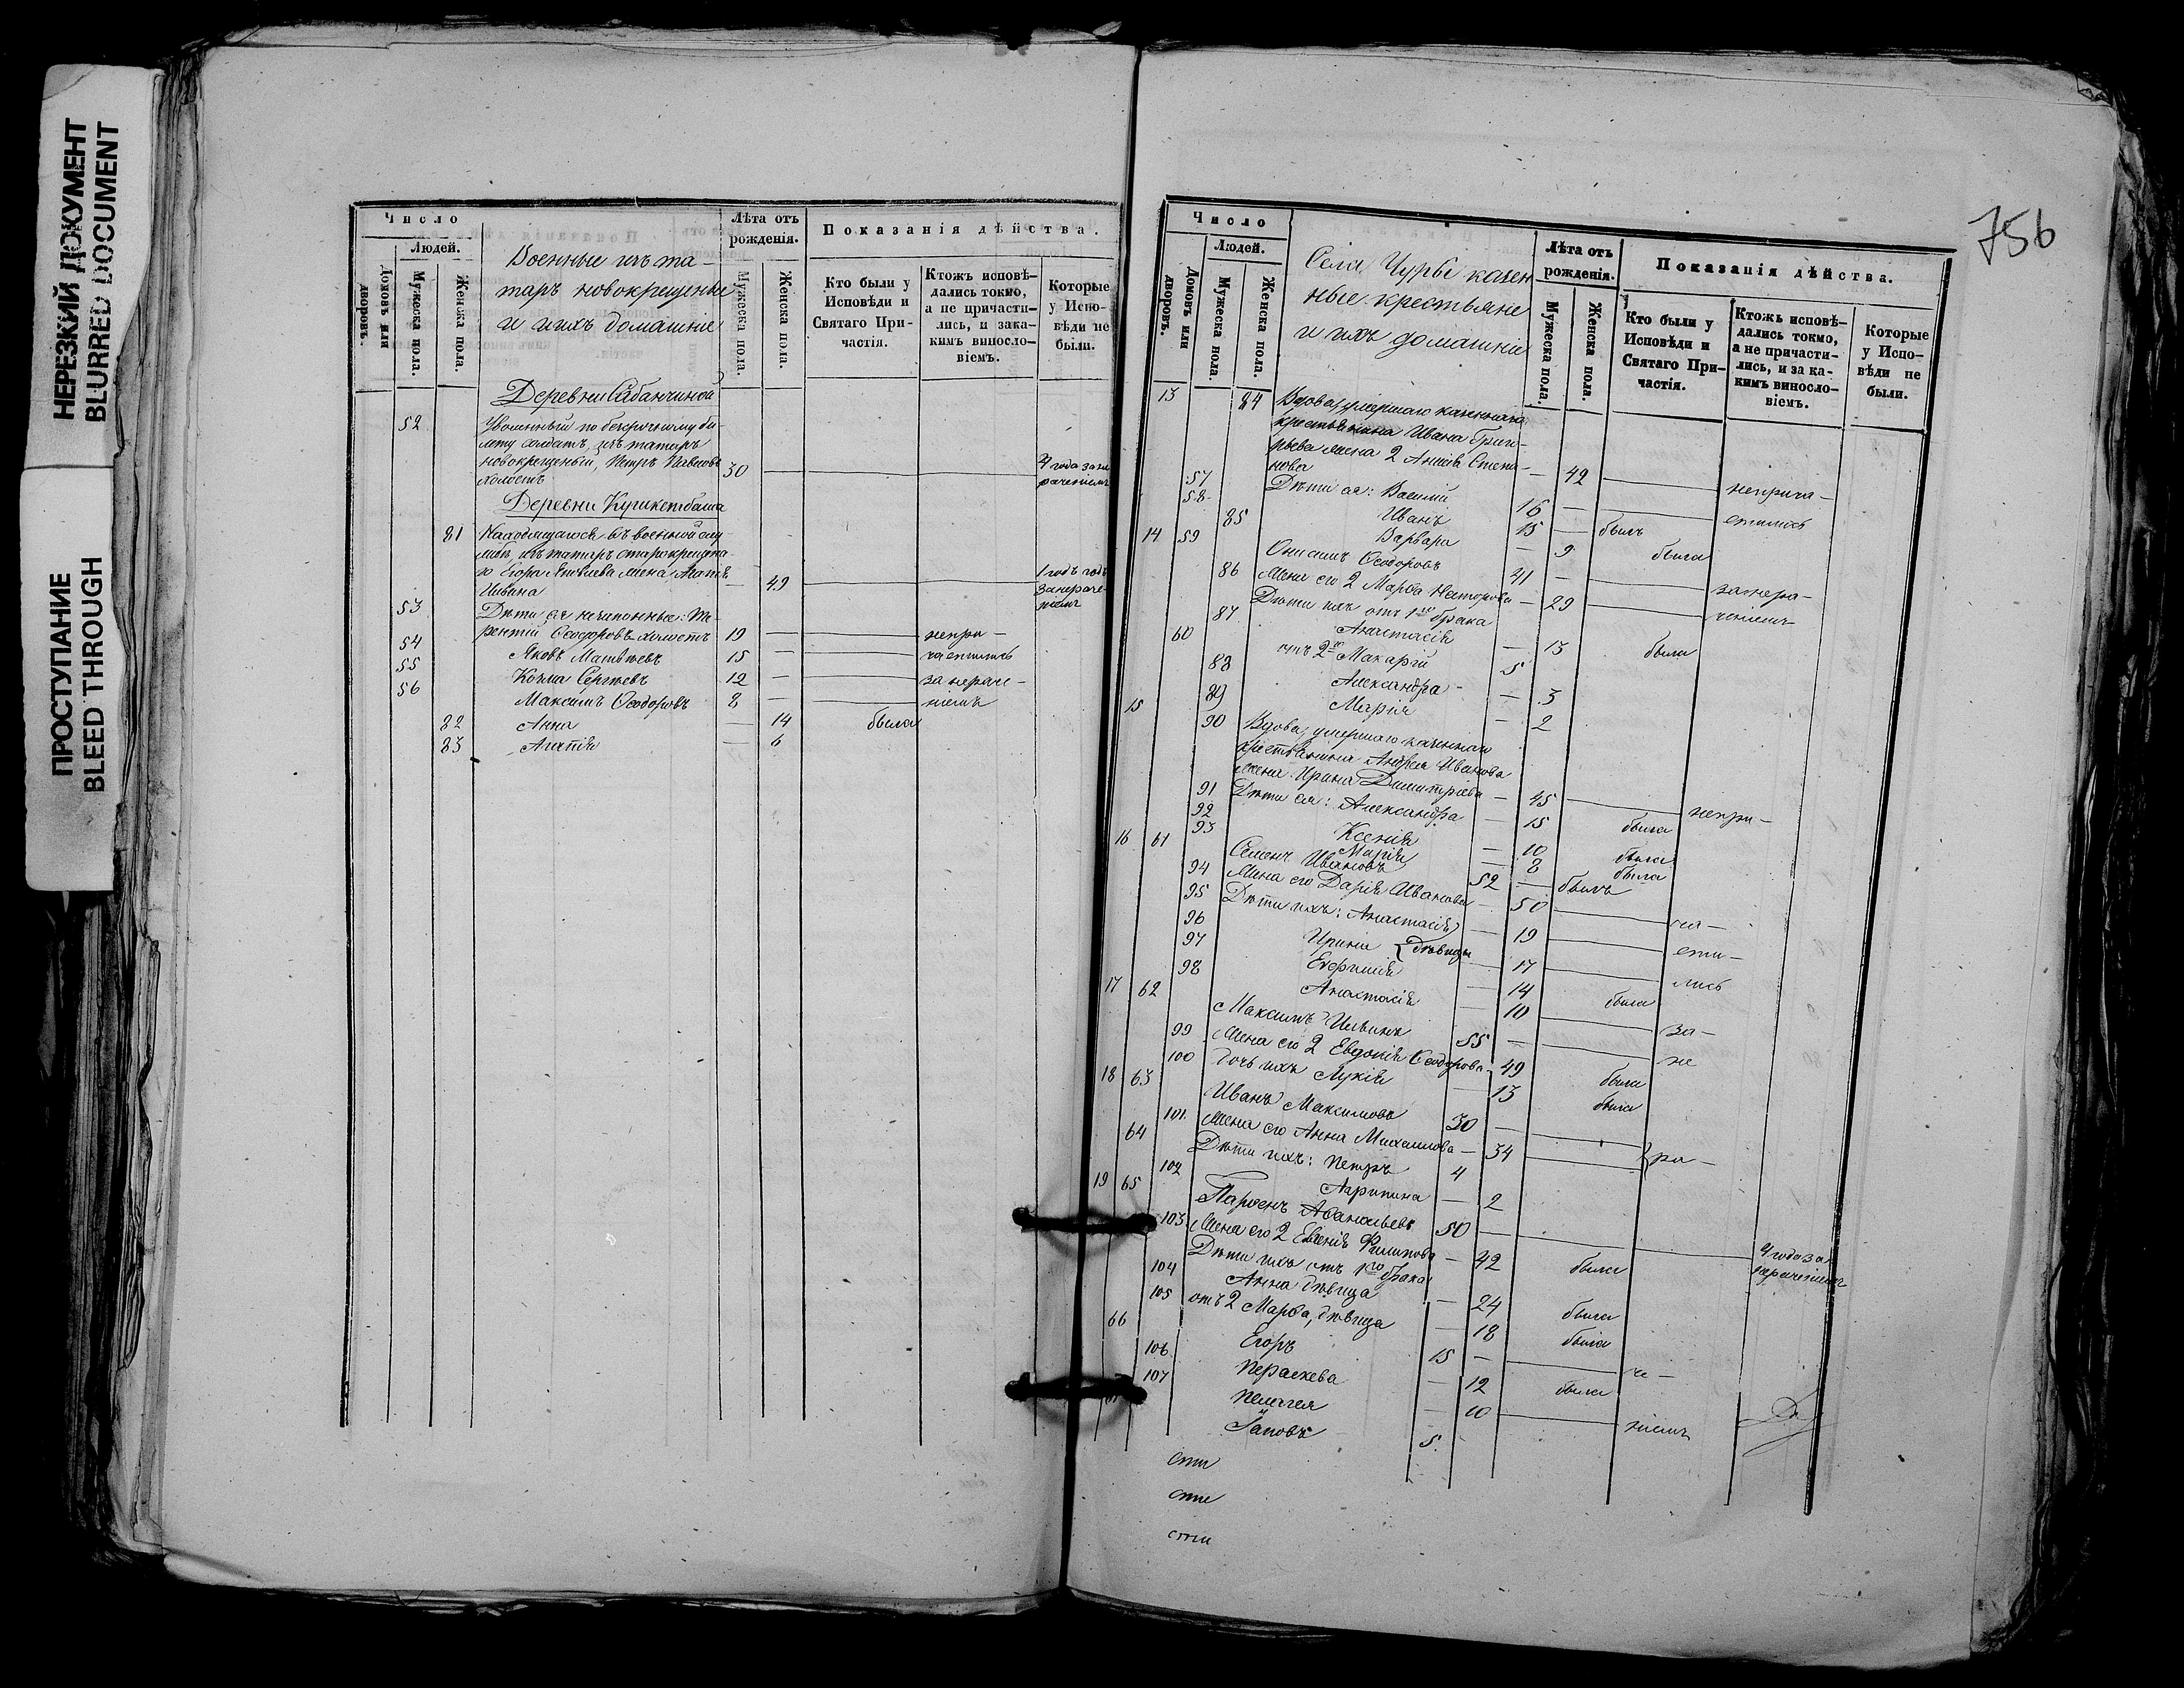 НЕРЕЗКИЙ ДОКУМЕНТ
BLURRED DOCUMENT
ПРОСТУПАНИЕ
BLEED THROUGH
Число
Людей.
Домовъ или дворовъ.
Мужеска пола.
Женска пола.
Военные изъ та-
таръ новокрещенные
и ихъ домашніе
Лѣта отъ рожденія.
Мужеска пола.
Женска пола.
Показанія дѣйства.
Кто были у Исповѣди и Святаго Причастія.
Ктожъ исповѣдались токмо, а не причастились, и закакимъ винословіемъ.
Которые у Исповѣди не были.
Деревни Сабанчиной
52 Уволенный по безсрочному би-
лету солдатъ, изъ татаръ
новокрещеный, Петръ Павловъ 30 — 4 года за не
холостъ рачениемъ
Деревни
81 Находящагося въ военной слу-
жбѣ, изъ татаръ старокрещена-
го Егора Яковлева жена Агапія — 49 1 годъ
Ивана занераче-
ніемъ
53 Дѣти ея незаконные: Те-
рентій Ѳеодоровъ холостъ 19 — непри-
54 Яковъ Матвѣевъ 15 — частились
55 Козма Сергѣевъ 12 — за нераче-
56 Максимъ Ѳеодоровъ 8 — ніемъ
82 Анна — 14 была
83 Агапія — 6
756
Число
Людей.
Домовъ или дворовъ.
Мужеска пола.
Женска пола.
Села Чурьи казен
ные крестьяне
и ихъ домашніе
Лѣта отъ рожденія.
Мужеска пола.
Женска пола.
Показанія дѣйства.
Кто были у Исповѣди и Святаго Причастія.
Ктожъ исповѣдались токмо, а не причастились, и за какимъ винословіемъ.
Которые у Исповѣди не были.
13 84 Вдова, умершаго казеннаго
крестьянина Ивана Григо-
рьева жена 2 Степа-
нова — 42 неприча-
57 Дѣти ея: Василій 16 — стились
58 Иванъ 15 — былъ
85 Варвара — 9 была
14 59 Онисимъ Ѳеодоровъ 41 — занера-
86 Жена его 2 Марѳа Несторова — 29 ченіемъ
Дѣти ихъ отъ 1го брака
87 Анастасія — 13 была
60 отъ 2го Макарій 5
88 Александра — 3
89 Марія — 2
15 90 Вдова, умершаго казеннаго
крестьянина Андрея Иванова
жена Ирина Димитріева — 45 непри-
91 Дѣти ея: Александра — 15 была
92 Ксенія — 10 была
93 Марія — 8 была
16 61 Семенъ Ивановъ 52 — былъ
94 Жена его Дарія Иванова — 50 ча-
95 Дѣти ихъ: Анастасія — 19 сти-
96 Ирина } дѣвицы — 17 лись
97 Евфимія — 14 была
98 Анастасія — 10 за-
17 62 Максимъ Ильинъ 55 — не
99 Жена его 2 Евдокія Ѳеодорова — 49 была
100 Дочь ихъ Лукія — 13 была
18 63 Иванъ Максимовъ 30 —
101. Жена его Анна Михаилова — 34 ра-
64 Дѣти ихъ: Петръ 4
102 Агрипина — 2
19 65 Парѳенъ Аѳанасьевъ 50 — 4 года за
103 Жена его 2 Евгенія Филипова — 42 была нераченіемъ
Дѣти ихъ отъ 1го брака
104 Анна дѣвица — 24 была
105 отъ 2 Марѳа, дѣвица — 18 была
66 Егоръ 15 — че-
106 Пераскева — 12 была
107 Пелагея — 10 ніемъ
67 Іаковъ 5.
сти
сти
сти